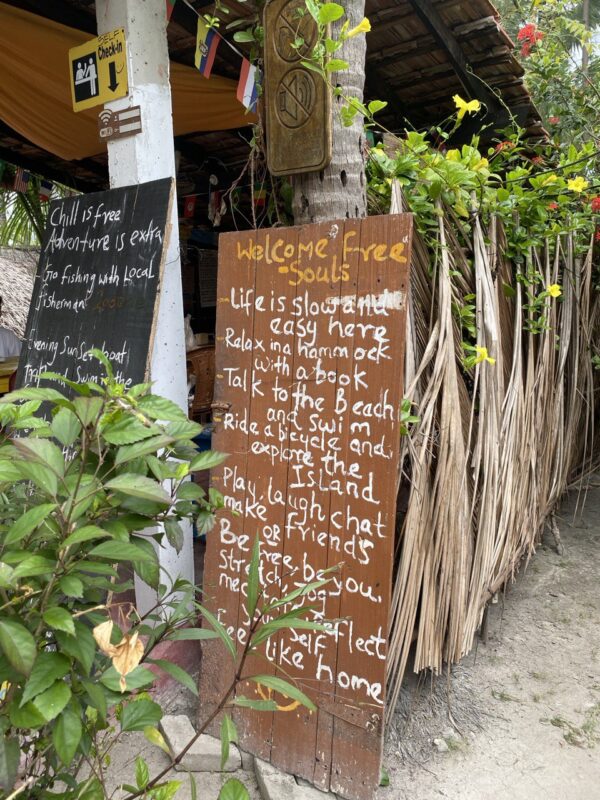 SELF
Check-in
Chill is free
Adventure is extra
- Go fishing with Local
fisherman
Evening Sunset boat
and Swim
Welcome Free
-Souls
-Life is slow and
easy here
-Relax in a hammock
with a book
Talk to the Beach
and swim
Ride a bicycle and
explore the
Island
Play, laugh, chat
OR
make friends
Be free, be you,
Stretch,
Reflect
your self
Feel like home